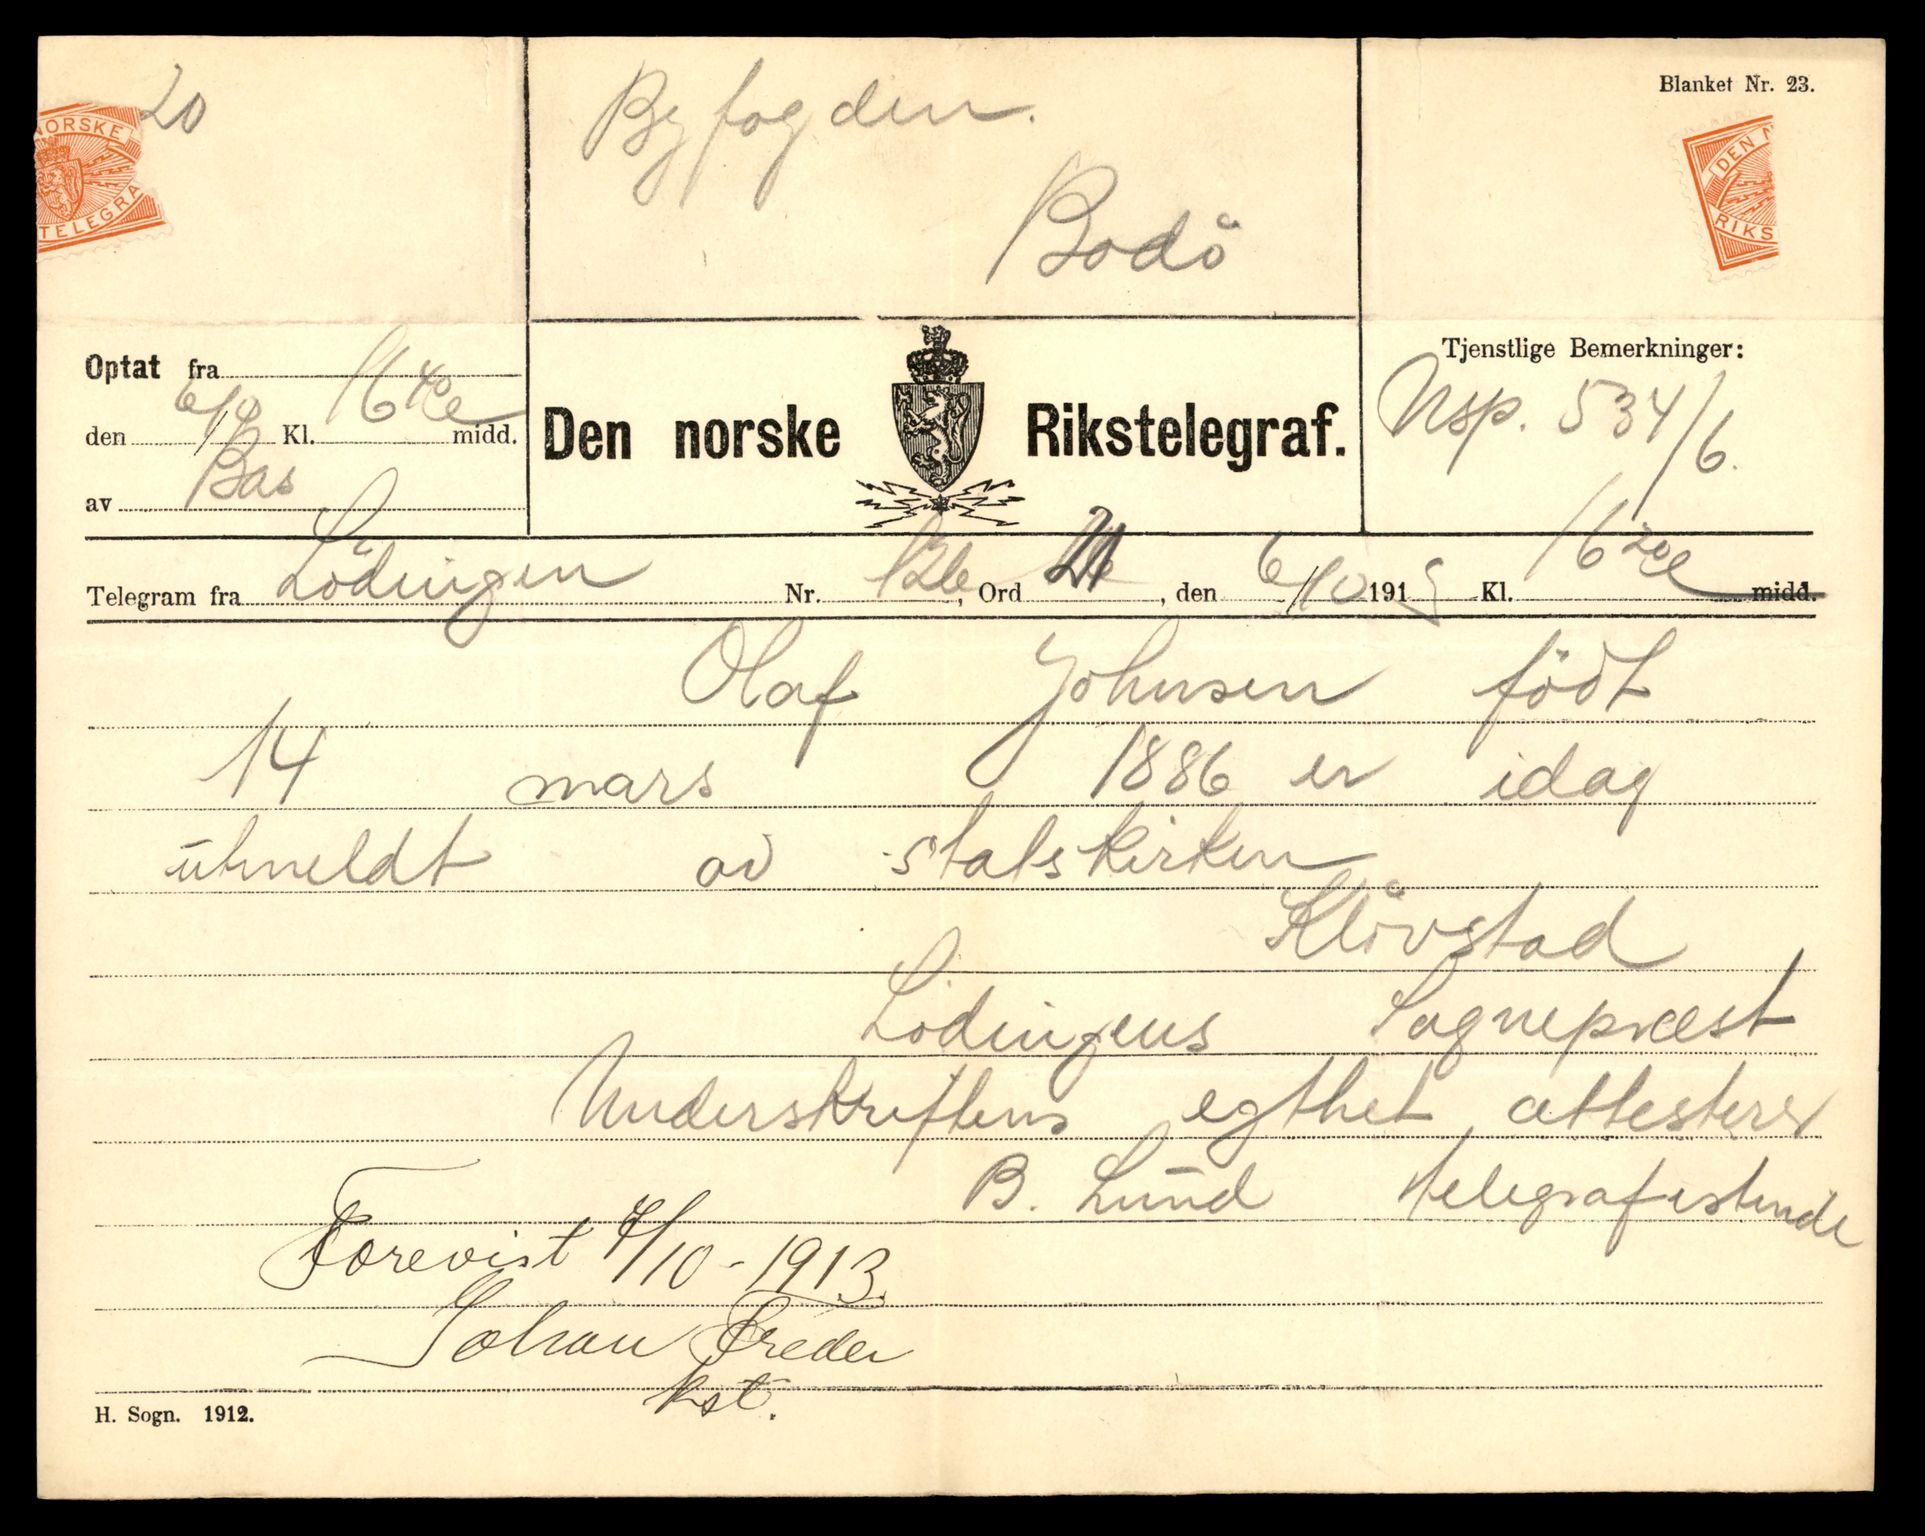 20
Byfogden.
Bodö
Blanket Nr. 23.
NORSKE
TELEGRA
DEN N
RIKS
Optat fra
den 6/10 Kl. 16 40 midd.
av Bas
Den norske Rikstelegraf.
Tjenstlige Bemerkninger:
Nsp. 534/6.
Telegram fra Lödingen Nr. 126, Ord 21, den 6/10 191 Kl. 16 20 midd.
Olaf Johnsen födt
14 mars 1886 er idag
utmeldt av statskirken
Klövstad
Lödingens Sogneprest
Underskriftens egthet attesteres
B. Lund telegrafistinde
Forevist 7/10 - 1913.
Johan Breder
kst.
H. Sogn. 1912.